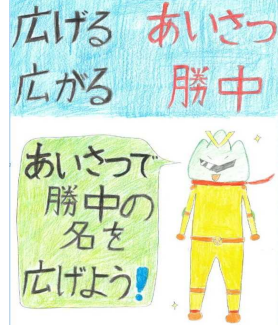 広げる あいさつ
広がる 勝中
あいさつで
勝中の
名を
広げよう!